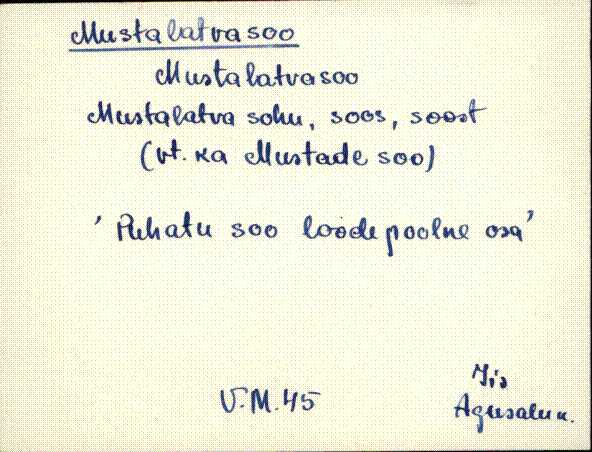 Mustalatvasoo
Mustalatvasoo
Mustalatva sohu, soos, soost
(vt. ka Mustade soo)
'Puhatu soo loodepoolne osa'
V.M.45
Iis
Agusalu k.